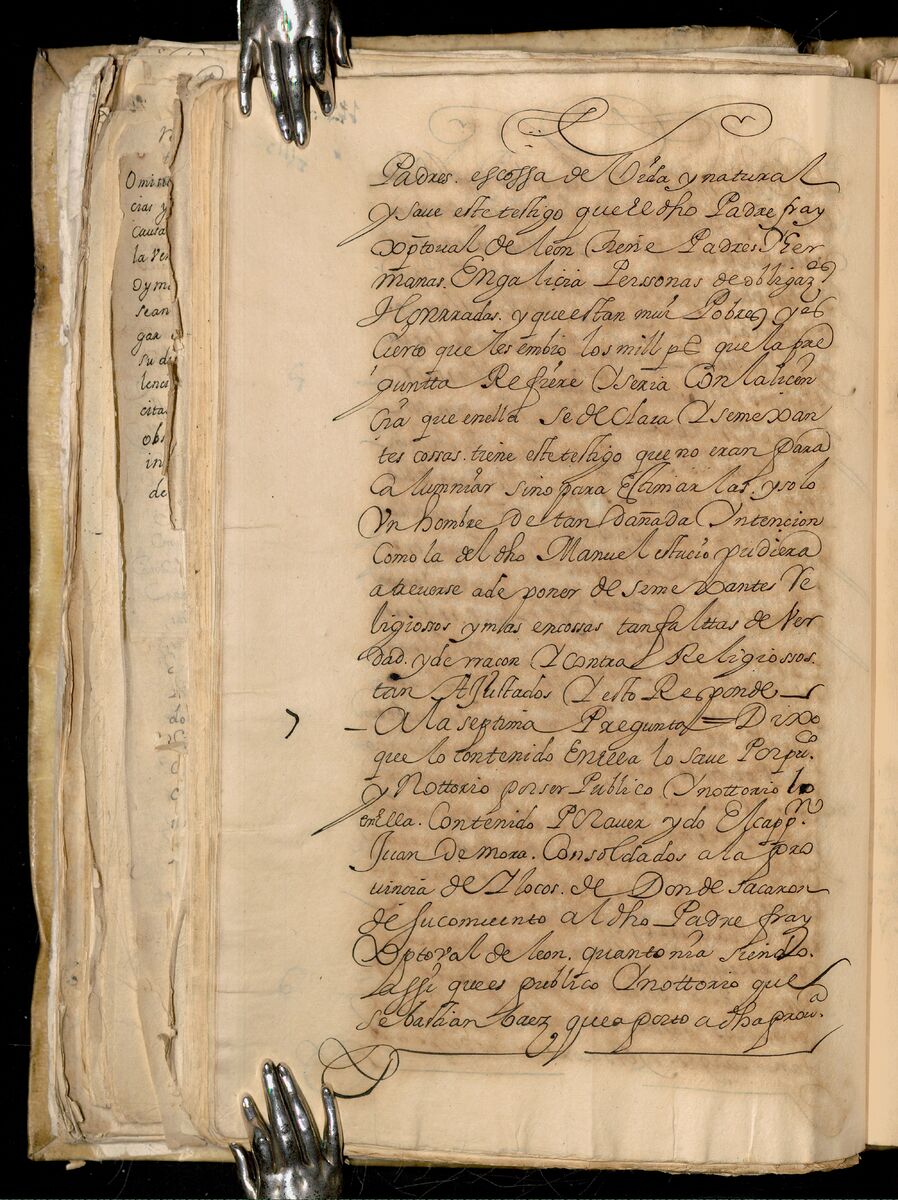 Omisi
cias y
Causa
la Ve
Oyma
sean
gar
su d
lenc
cita
obs
in
de
Padres. es cossa de Vida y natural
y save este testigo que El dho Padre fray
xptoval de león tiene Padres Y Her
manas. En galicia Perssonas de obligazes
Honrradas. y que estan mui Pobres y es
Cierto que les embio los mill ps que la pre
guntta Refiere Y seria Con la licen
cia que en ella se declara Y semexan
tes cossas. tiene este testigo que no eran para
Calumniar sino para Estimarlas. y solo
Vn hombre de tan dañada Yntencion
Como la del dho Manuel estacio pudiera
atreverse a de poner de semexantes Re
ligiossos y mas en cossas tan falttas de Ver
dad. y de rracon Y contra Religiossos.
tan Ajustados Y esto Responde
7 A la septima Pregunta Dixo
que lo contenido En ella lo save Por pu.co
y Nottorio por ser Publico Y nottorio lo
en Ella. Contenido Por aver ydo El capp.n
Juan De mora. Con soldados a la pro
vincia de Ylocos. de Donde sacaron
de su comviento al dho Padre fray
Xptoval de leon. quanto mas siendo.
assi que es publico Y nottorio que
sebastian baez que aporto a dha prov.a